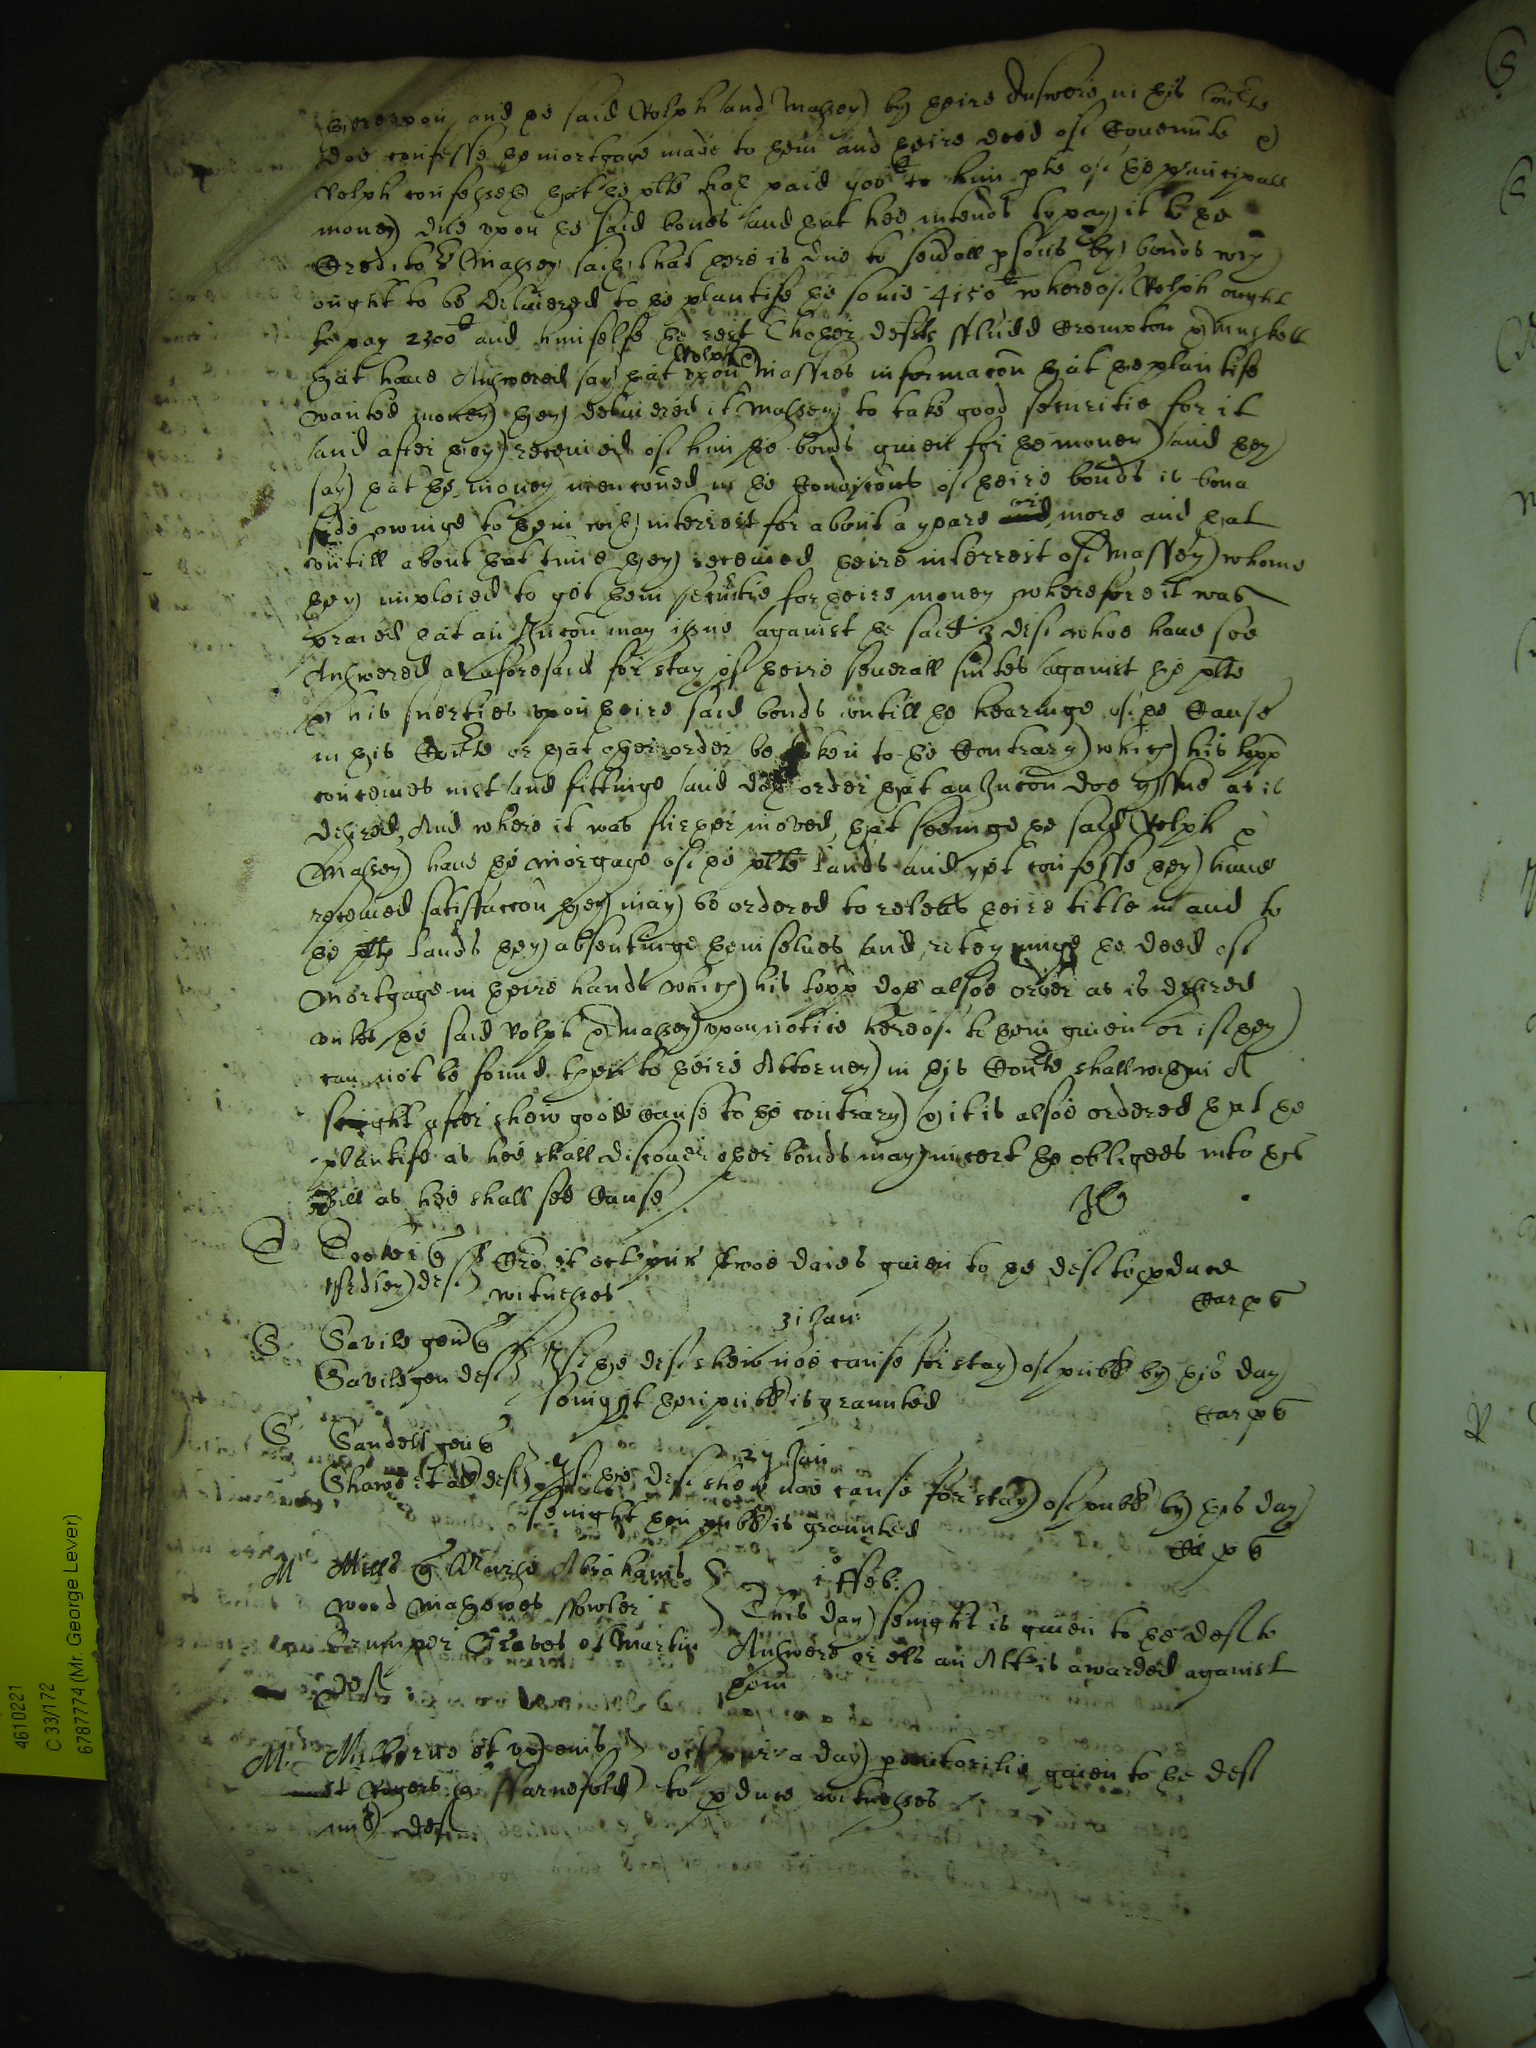 hereupon and the said Rolph and Massey by theire Answere in this Courte
doe confesse the mortgage made to them and theire deed of Covenante &
Rolph confesseth that the plte hath paid 400li to him pte of the principall
money due upon the said bonds and that hee intends to pay it to the
Creditors Massey saith that there is due to severall psons by bonds wch
ought to be delivered to the plantife the some 4150li whereof Rolph ought
to pay 2300li and himselfe the rest thother defts Fludd Crompton & Muskett
that have Answered say that upon Rolph & Massies informacon that the plantife
wanted money they delivered it Massey to take good securitie for it
and after they received of him the bonds given for the money and they
say that the money mencioned in the Condicons of theire bonds is bona
fide owinge to them with interrest for about a yeare and more and that
untill about that time they received theire interrest of Massey whome
they imploied to get them securitie for theire money wherefore it was
praied that an Iniuncon may issue against the said 3 deft whoe have soe
Answered as aforesaid for stay of theire severall suites against the plte
& his suerties upon theire said bonds untill the hearinge of the Cause
in this Courte or that other order be taken to the Contrary which his lopp
conceives meet and fittinge and doth order that an Iniuncon doe yssue as is
desired, And where it was further moved that seeinge the said Rolph &
Massey have the morgage of the plte lands and yet confesse they have
received satisfaccon they may be ordered to release theire title in and to
the plte lands they absentinge themselves and reteyninge the deed of
Mortgage in theire hands which his lopp doth alsoe order as is desired
unles the said Rolph & Massey upon notice hereof to them given or if they
can not be found then to theire Attorney in this Courte shall within A
senight after shew good cause to the contrary & it is alsoe ordered that the
plantife as hee shall discover other bonds may insert the obligees into this
Bill as hee shall see Cause
deft Cro it oct pur twoe daies given to the deft to pduce
witnesses
31 Jan:
S Savile gen q
Savile gen deft If the deft shew noe cause for stay of publ by this day
senight then publ is graunted
S Sandell gen q
27 Jan
Shawe et al deft If the deft shew noe cause for stay of publ by this day
senight then publ is graunted
M Mills q Abrahams
1 Feb:
wood Mathewes Fowler
This day senight is given to the deft to
Groves et Martin Answere or els an Att is awarded against
deft them
M. Milborne et ux
a day peremtorilie given to the deft
Rogers & Farnefold to pduce witnesses
deft
4610221
C 33/172
6787774 (Mr. George Lever)